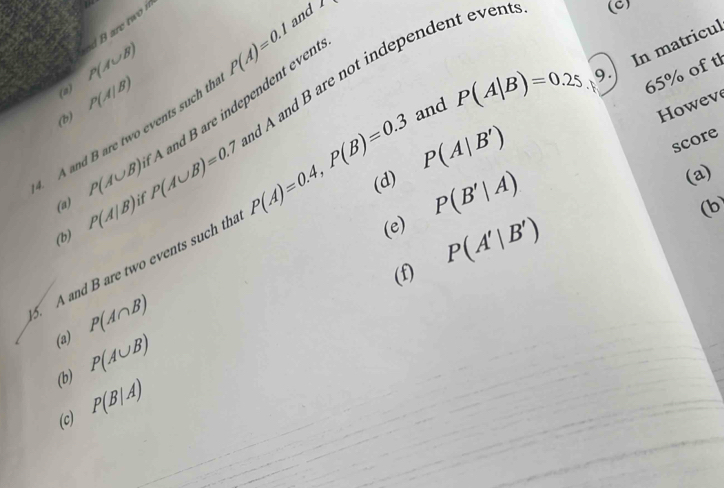 B are two
(a) P(A∪B)
(b) P(A|B)
14. A and B are two events such that P(A)=0.1 and
(a) P(A∪B) if A and B are independent events.
(b) P(A|B) if P(A∪B)=0.7 and A and B are not independent events.
15. A and B are two events such that P(A)=0.4, P(B)=0.3 and P(A|B)=0.25.
(a) P(A∩B)
(b) P(A∪B)
(c) P(B|A)
(d) P(A|B')
(e) P(B'|A)
(f) P(A'|B')
(c)
9. In matricul
65% of th
Howeve
score
(a)
(b)